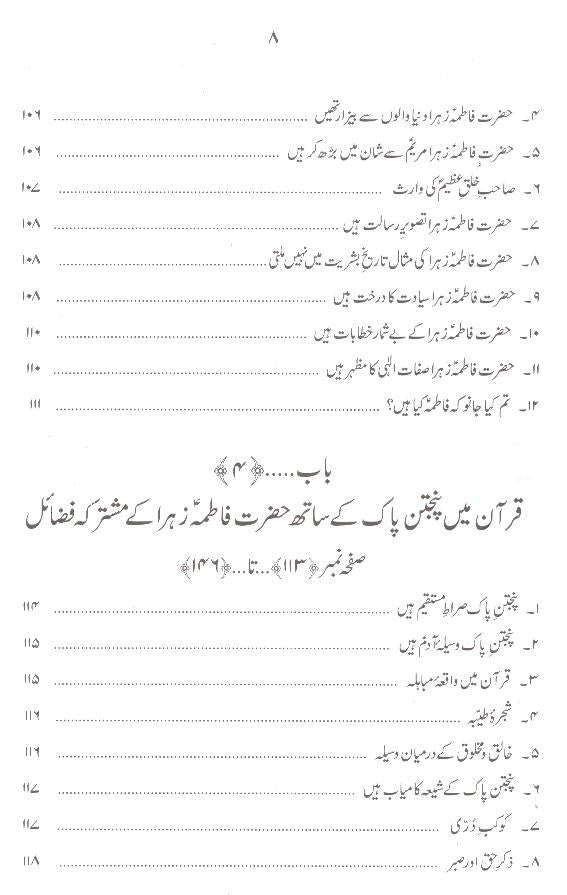 ۸
۴۔ حضرت فاطمہؑ زہرا دنیا والوں سے بیزار تھیں ........ ۱۰۶
۵۔ حضرت فاطمہؑ زہرا مریمؑ سے شان میں بڑھ کر ہیں ........ ۱۰۶
۶۔ صاحبِ خُلقِ عظیمؐ کی وارث ........ ۱۰۷
۷۔ حضرت فاطمہؑ زہرا تصویرِ رسالت ہیں ........ ۱۰۸
۸۔ حضرت فاطمہؑ زہرا کی مثال تاریخِ بشریت میں نہیں ملتی ........ ۱۰۸
۹۔ حضرت فاطمہؑ زہرا سیادت کا درخت ہیں ........ ۱۰۸
۱۰۔ حضرت فاطمہؑ زہرا کے بے شمار خطابات ہیں ........ ۱۱۰
۱۱۔ حضرت فاطمہؑ زہرا صفات الٰہی کا مظہر ہیں ........ ۱۱۰
۱۲۔ تم کیا جانو کہ فاطمہؑ کیا ہیں؟ ........ ۱۱۱
باب.....﴿۴﴾
قرآن میں پنجتن پاک کے ساتھ حضرت فاطمہؑ زہرا کے مشترکہ فضائل
صفحہ نمبر ﴿۱۱۳﴾...تا...﴿۱۴۶﴾
۱۔ پنجتنِ پاک صراطِ مستقیم ہیں ........ ۱۱۴
۲۔ پنجتنِ پاک وسیلۂ آدمؑ ہیں ........ ۱۱۵
۳۔ قرآن میں واقعۂ مباہلہ ........ ۱۱۵
۴۔ شجرۂ طیّبہ ........ ۱۱۶
۵۔ خالق و مخلوق کے درمیان وسیلہ ........ ۱۱۶
۶۔ پنجتن پاک کے شیعہ کامیاب ہیں ........ ۱۱۷
۷۔ کوکبِ دُرّی ........ ۱۱۷
۸۔ ذکرِ حق اور صبر ........ ۱۱۸